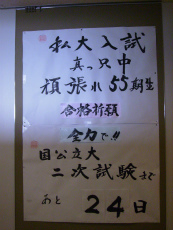 私大入試
真っ只中
頑張れ55期生
合格祈願
全力で!!
国公立大
二次試験まで
あと 24日